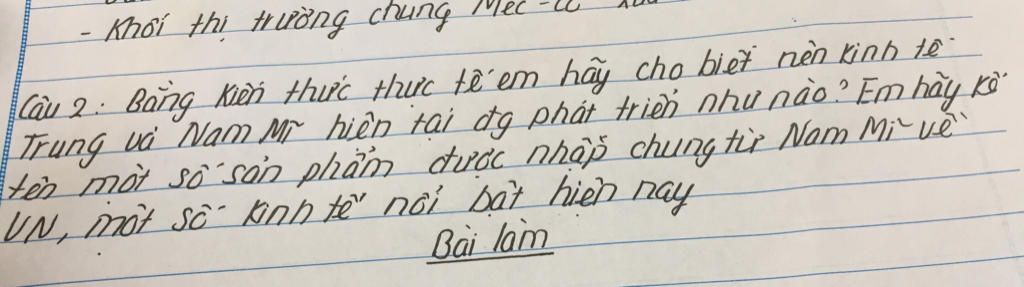 - Khối thị trường chung Mec-
Câu 2: Bằng kiến thức thực tế em hãy cho biết nền kinh tế
Trung và Nam Mĩ hiện tại đg phát triển như nào? Em hãy kể
tên một số sản phẩm được nhập chung từ Nam Mĩ về
VN, một số kinh tế nổi bật hiện nay
Bài làm